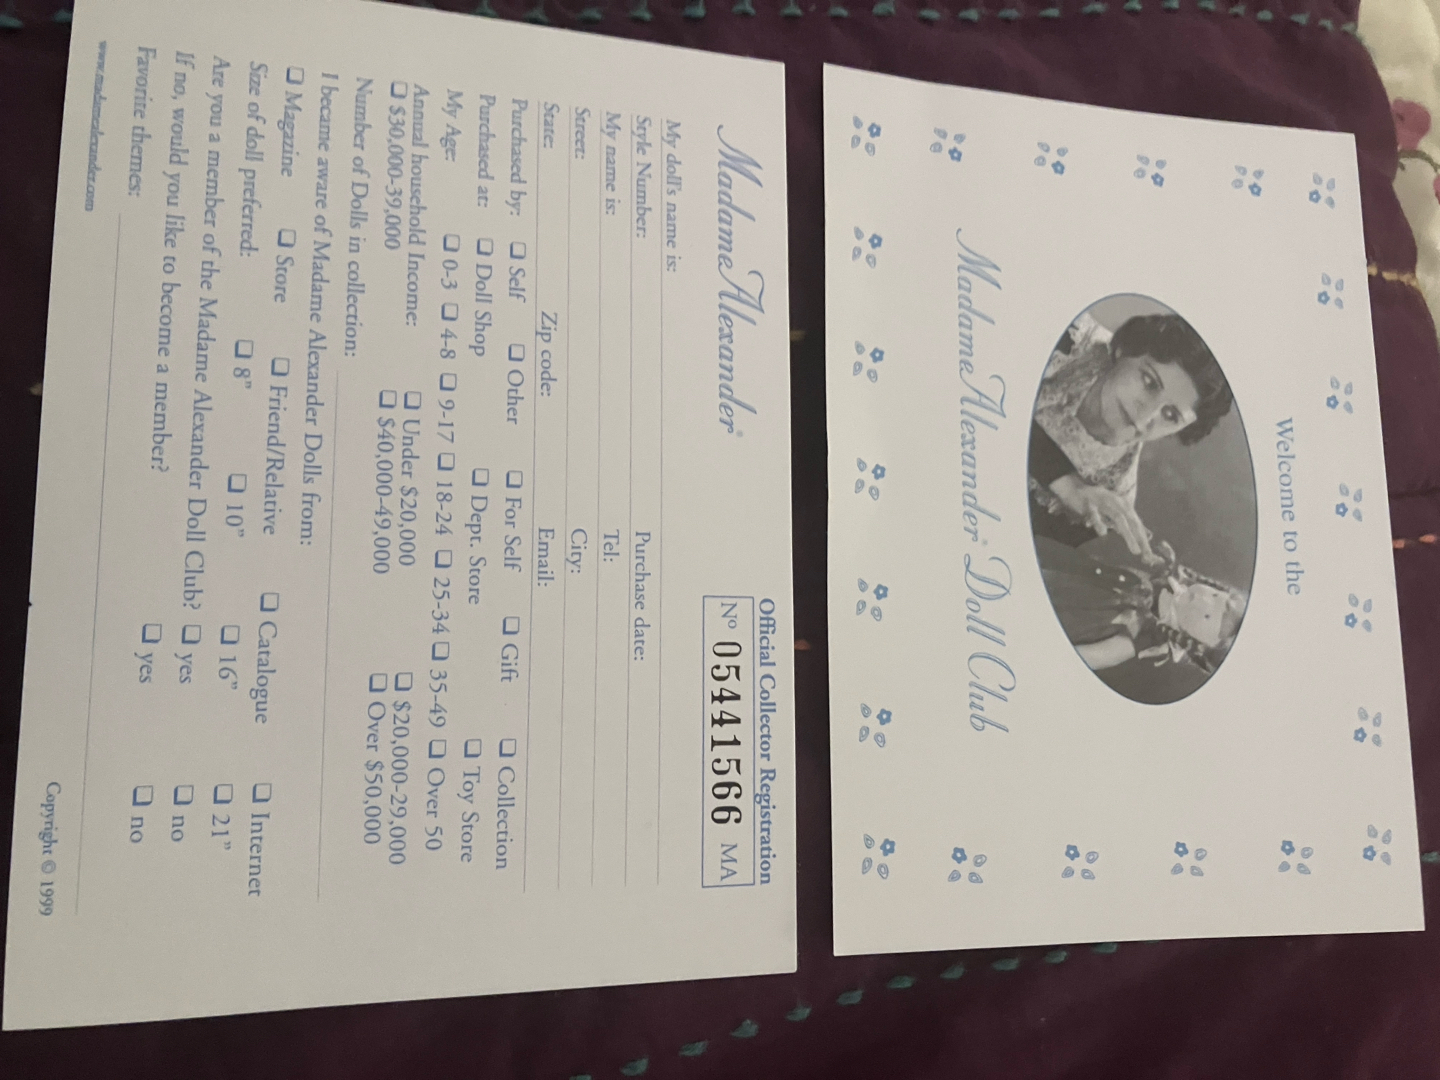 Welcome to the
Madame Alexander® Doll Club
Madame Alexander®
Official Collector Registration
Nº 05441566 MA
My doll's name is:
Style Number: Purchase date:
My name is: Tel:
Street: City:
State: Zip code: Email:
Purchased by: ❏ Self ❏ Other ❏ For Self ❏ Gift ❏ Collection
Purchased at: ❏ Doll Shop ❏ Dept. Store ❏ Toy Store
My Age: ❏ 0-3 ❏ 4-8 ❏ 9-17 ❏ 18-24 ❏ 25-34 ❏ 35-49 ❏ Over 50
Annual household Income: ❏ Under $20,000 ❏ $20,000-29,000
❏ $30,000-39,000 ❏ $40,000-49,000 ❏ Over $50,000
Number of Dolls in collection:
I became aware of Madame Alexander Dolls from:
❏ Magazine ❏ Store ❏ Friend/Relative ❏ Catalogue ❏ Internet
Size of doll preferred: ❏ 8" ❏ 10" ❏ 16" ❏ 21"
Are you a member of the Madame Alexander Doll Club? ❏ yes ❏ no
If no, would you like to become a member? ❏ yes ❏ no
Favorite themes:
www.madamealexander.com Copyright © 1999